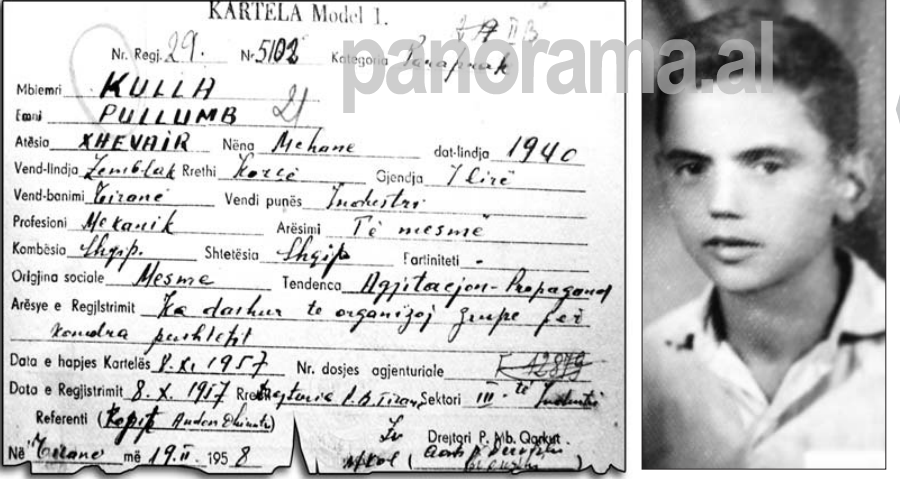 KARTELA Model 1.
Nr. Regj. 29. Nr. 5102 Kategoria
panorama.al
Mbiemri KULLA
Emni PULLUMB 21
Atësia XHEVAIR Nëna Mehane dat-lindja 1940
Vend-lindja Zemblak Rrethi Korcë Gjendja I lirë
Vend-banimi Tiranë Vendi punës Industri
Profesioni Mekanik Arësimi Të mesmë
Kombësia Shqip. Shtetësia Shqip Fartiniteti -
Origjina sociale Mesme Tendenca Agjitacjon-Propagand
Arësye e Regjistrimit Ka dashur te organizoj grupe për
kondra pushtetit
Data e hapjes Kartelës 8.XI.1957 Nr. dosjes agjenturiale 12879
Data e Regjistrimit 8.X.1957 P.B. Tiran Sektori III-të Industri
Referenti (Kopit
Drejtori P. Mb. Qarkut
Në Tirane më 19.II.1958